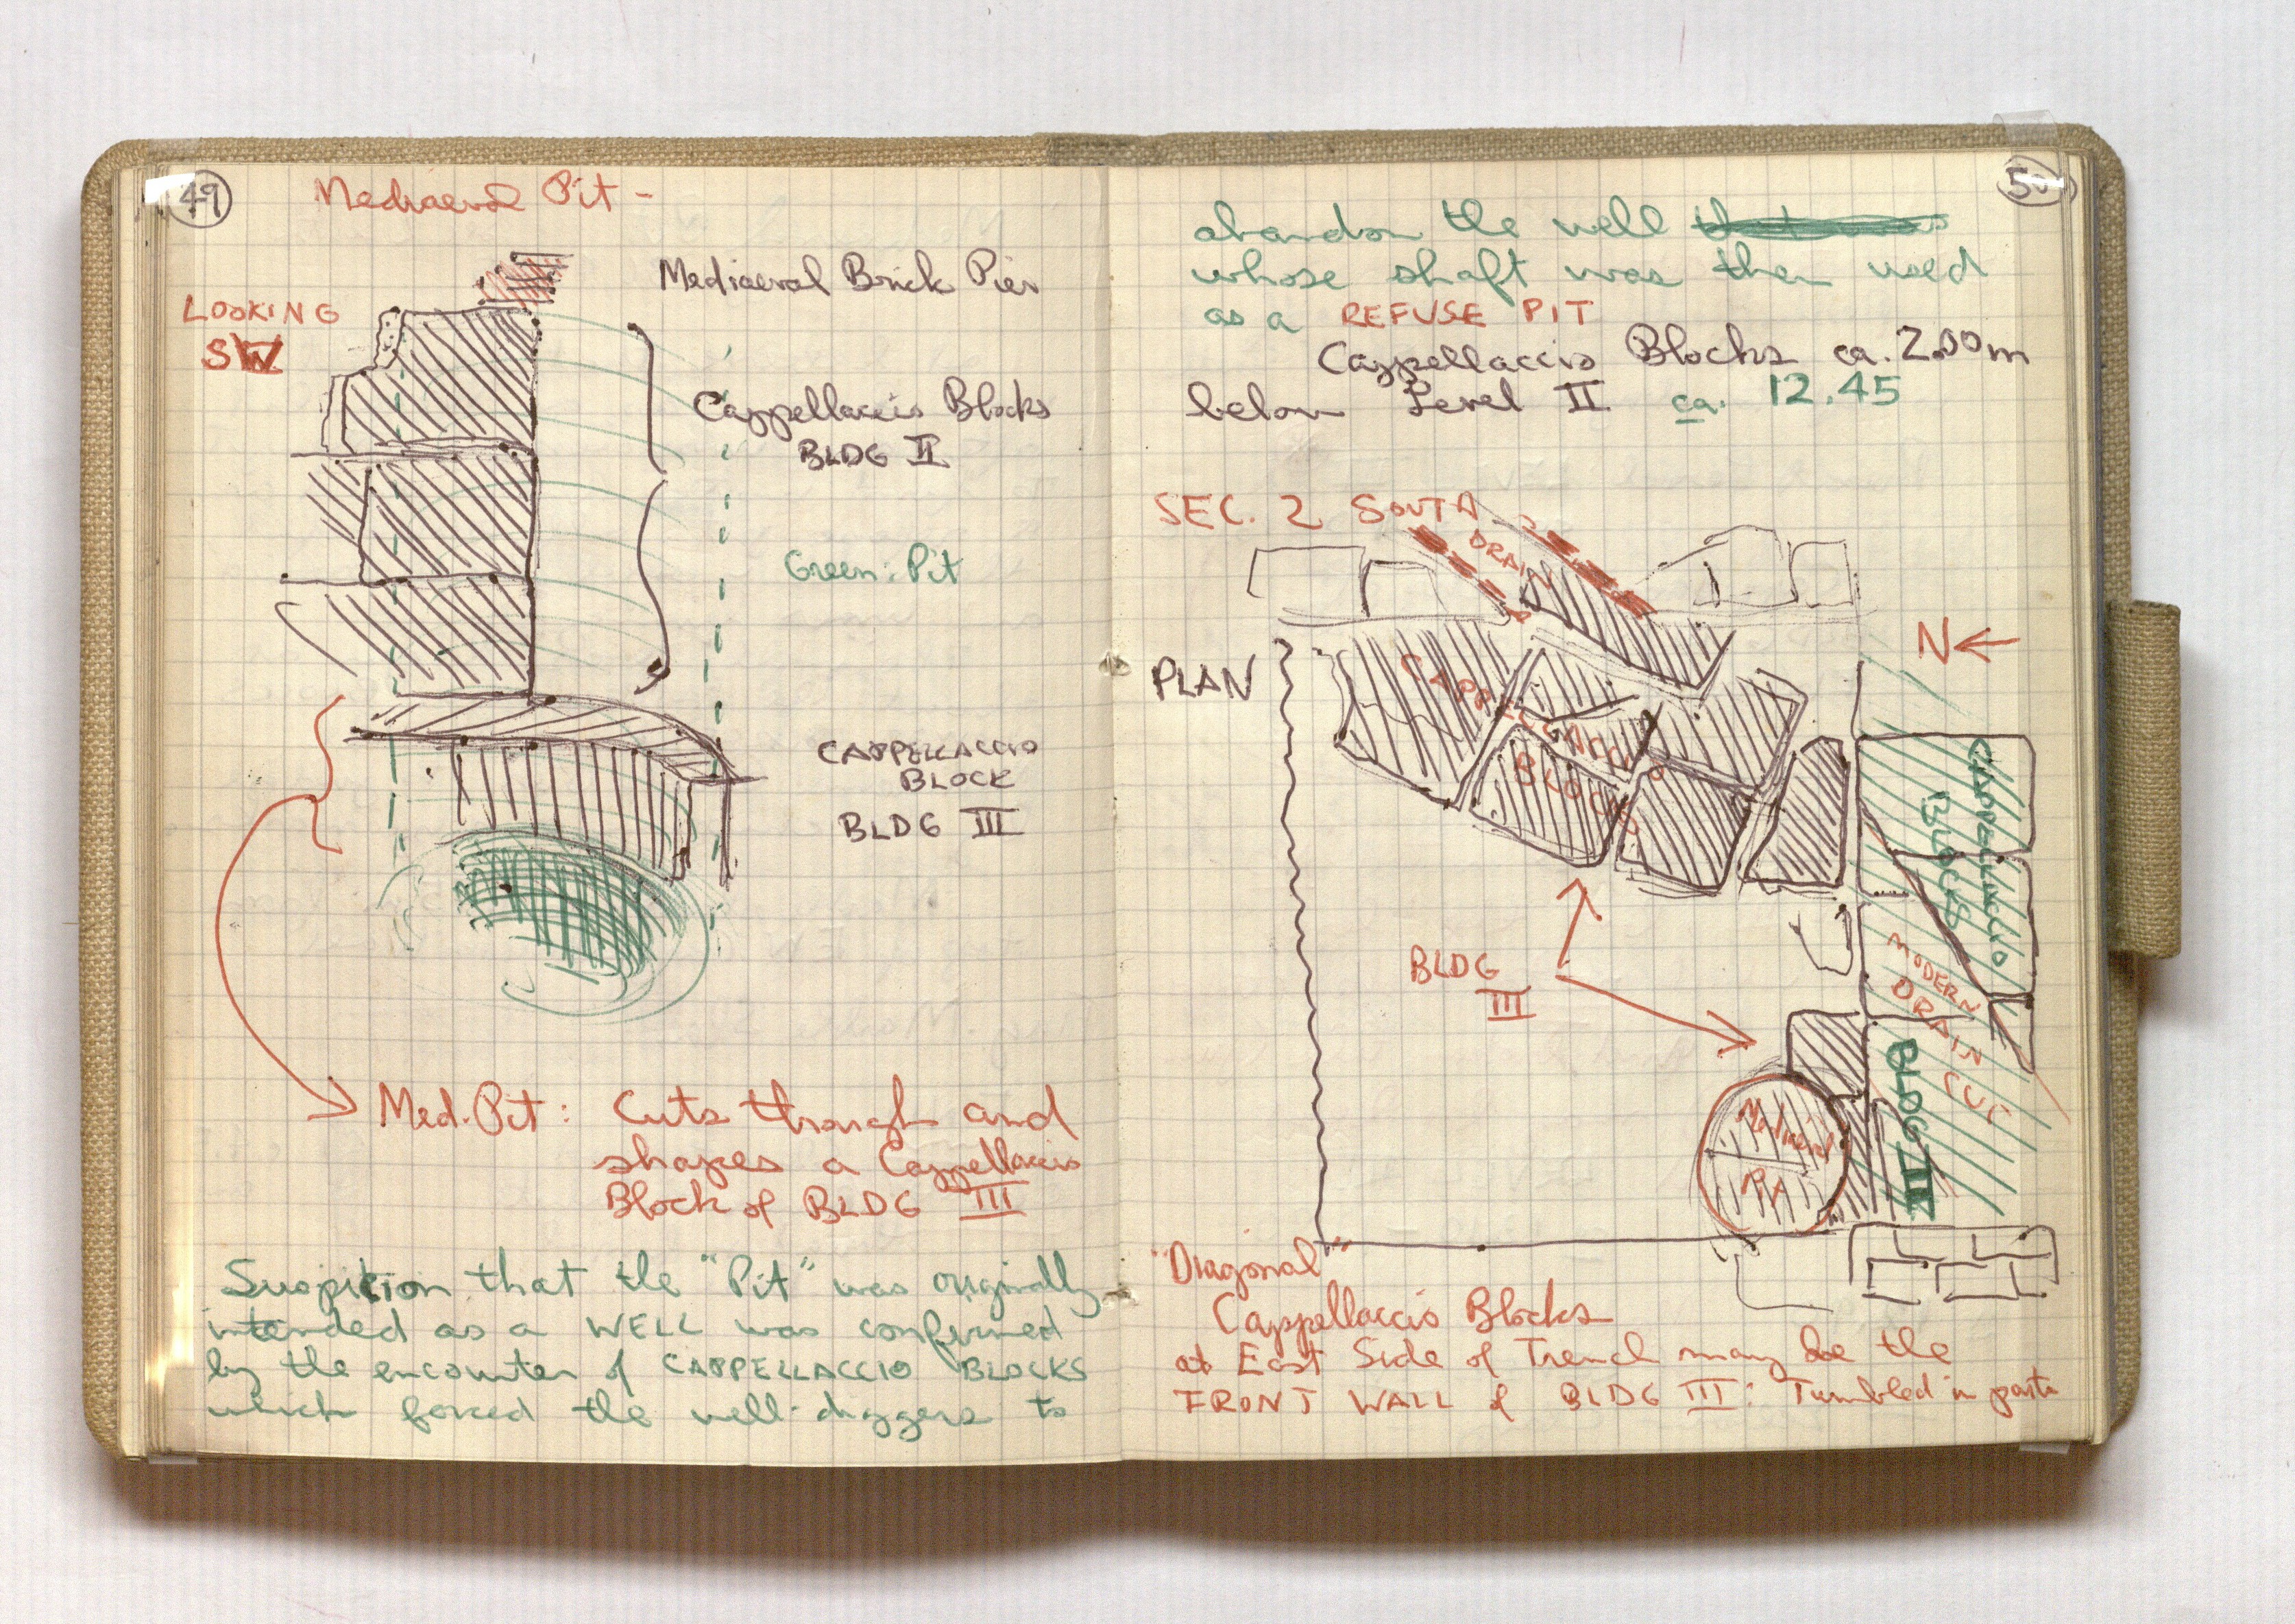 49
Mediaeval Pit -
Mediaeval Brick Pier
LOOKING
SW
Cappellaccio Blocks
BLDG II
Green: Pit
CAPPELLACCIO
BLOCK
BLDG III
Med. Pit: Cuts through and
shapes a Cappellaccio
Block of BLDG III
Suspicion that the "Pit" was originally
intended as a WELL was confirmed
by the encounter of CAPPELLACCIO BLOCKS
which forced the well-diggers to
50
abandon the well that was
whose shaft was then used
as a REFUSE PIT
Cappellaccio Blocks ca. 2.00m
below Level II ca. 12.45
SEC. 2 SOUTH
DRAIN
N
PLAN
CAPPELLACCIO
BLOCKS
CAPPELLACCIO
BLOCKS
MODERN
DRAIN
CUT
BLDG
III
BLDG III
Mediaeval
Pit
"Diagonal"
Cappellaccio Blocks
at East Side of Trench may be the
FRONT WALL of BLDG III: Tumbled in parts